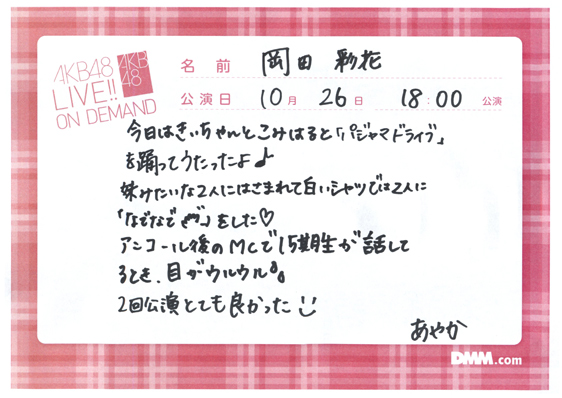 AKB48
LIVE!!
ON DEMAND
AKB
48
名前 岡田 彩花
公演日 10月 26日 18:00 公演
今日はきぃちゃんとこみはると「パジャマドライブ」
を踊ってうたったよ♪
妹みたいな2人にはさまれて白いシャツでは2人に
「なでなで」をした♡
アンコール後のMCで15期生が話して
るとき、目がウルウル
2回公演とても良かった
あやか
DMM.com